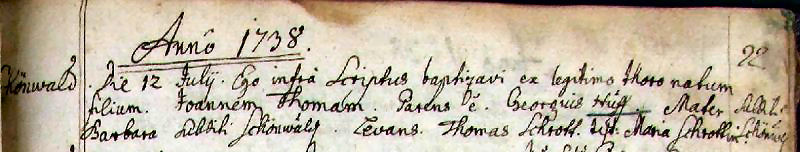 Anno 1738.
92
Schönwald. Die 12 Julij. Ego infra scriptus baptizavi ex legitimo thoro natum
filium. Joannem Thomam. Parens ē. Georgius Mater
Barbara Schönwald. Levans. Thomas Schrott. Maria Schrottin